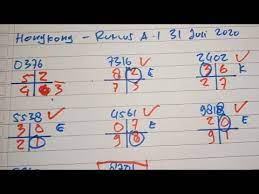 Hongkong - Rumus A-1 31 Juli 2020
0376 7316 ✓ 2402 ✓
5 2 8 2 E 3 6 E
4 6 3 7 3 2 7
5538 ✓ 4561 ✓ 9818 ✓
3 0 E 0 7 E 2 0 E
2 1 9 8 9 1